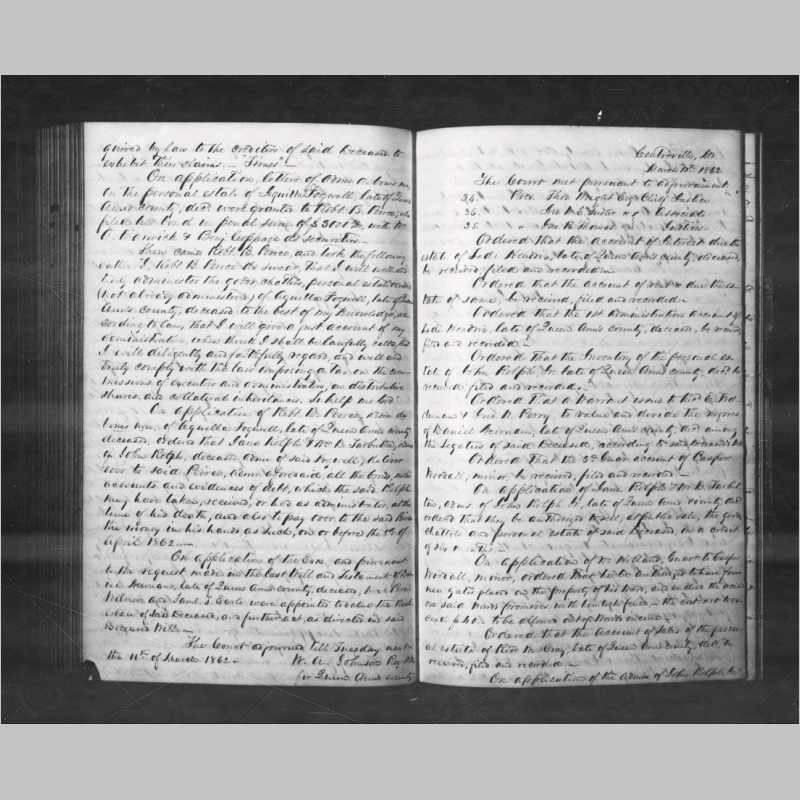 quired by law to the creditors of said Deceased to
exhibit their claims. "Times"
On application, letters of admn d. bonis non,
on the personal estate of Aquilla Fogwell, late of Queen
Ann's county, decd were granted to Robt B. Pierce, who
filed his Bond in penal sum of $3000, with
& Benj Coppage as securities
Then came Robt. B. Pierce, and took the following
oath. I Robt B Pierce do swear, that I will well and
truly administer the goods, chattles, personal estate & credits
(not already administered) of Aquilla Fogwell, late of Queen
Ann's county, deceased, to the best of my knowledge, ac-
cording to law, that I will give a just account of my
administration when thereto I shall be lawfully called, that
I will diligently and faithfully regard, and well and
truly comply with the law imposing a tax on the com-
missions of executors and administrators, on distributive
shares and collateral inheritances. So help me God
On application of Robt B. Pierce, admr de
bonis non, of Aquilla Fogwell, late of Queen Ann's county
deceased, ordered that Jane Rolph & Wm B. Tarbutton, admrs
of John Rolph, deceased admr of said Fogwell, deliver
over to said Pierce, admr aforesaid, all the Bonds, notes
accounts and evidences of debt, which the said Rolph
may have taken, received, or had as administrator, at the
time of his death, and also to pay over to the said Pierce
the money in his hands as such, on or before the 1st of
April 1862.
On application of the Exrs, and pursuant
to the request made in the last Will and Testament of
Newnam, late of Queen Ann's county, deceased,
Wilson and Saml T. Earle were appointed to value the
estate of said Deceased, and further act, as directed in said
Deceased's Will.
The Court adjourned till Tuesday next
the 11th of March 1862.
W. A. Johnson Reg Wills
for Queen Ann's county
Centreville, Md.
March 11th 1862
The Court met pursuant to adjournment.
Prest. Thos Wright Esqr Chief Justice
Associate
Justices
Ordered that the account of Interest due the
estate of late of Queen Ann's county, deceased,
be received, filed and recorded
Ordered that the account of rent due the es-
tate of same, be received, filed and recorded
Ordered that the 1st administration account of
late of Queen Ann's county, deceased, be received
filed and recorded
Ordered that the Inventory of the personal es-
tate of John Rolph Jr late of Queen Ann's county decd be
received filed and recorded.
Ordered that a warrant issue to
& Jno N. Perry to value and divide the negroes
of Daniel Newnam, late of Queen Ann's county, decd among
the Legatees of said Deceased, according to
Ordered that the 3rd Guar account of Casper
Woodall, minor, be received, filed and recorded
On application of Jane Rolph & Wm B. Tarbut-
ton, admrs. of John Rolph Jr, late of Queen Ann's county, decd
ordered that they be authorized to sell, at public sale, the goods
chattles and personal estate of said Deceased, on a credit
of six months.
On application of Guar to Casper
Woodall, minor, ordered that he be authorized to have four
new gates placed on the property of his Ward, and enclose the
on said Wards premises with plank fence, the cost not to ex-
ceed to be allowed out of Wards income
Ordered that the account of sales of the person-
al estate of Gray, late of Queen Ann's county, decd, be
received, filed and recorded
On application of the admrs of John Rolph